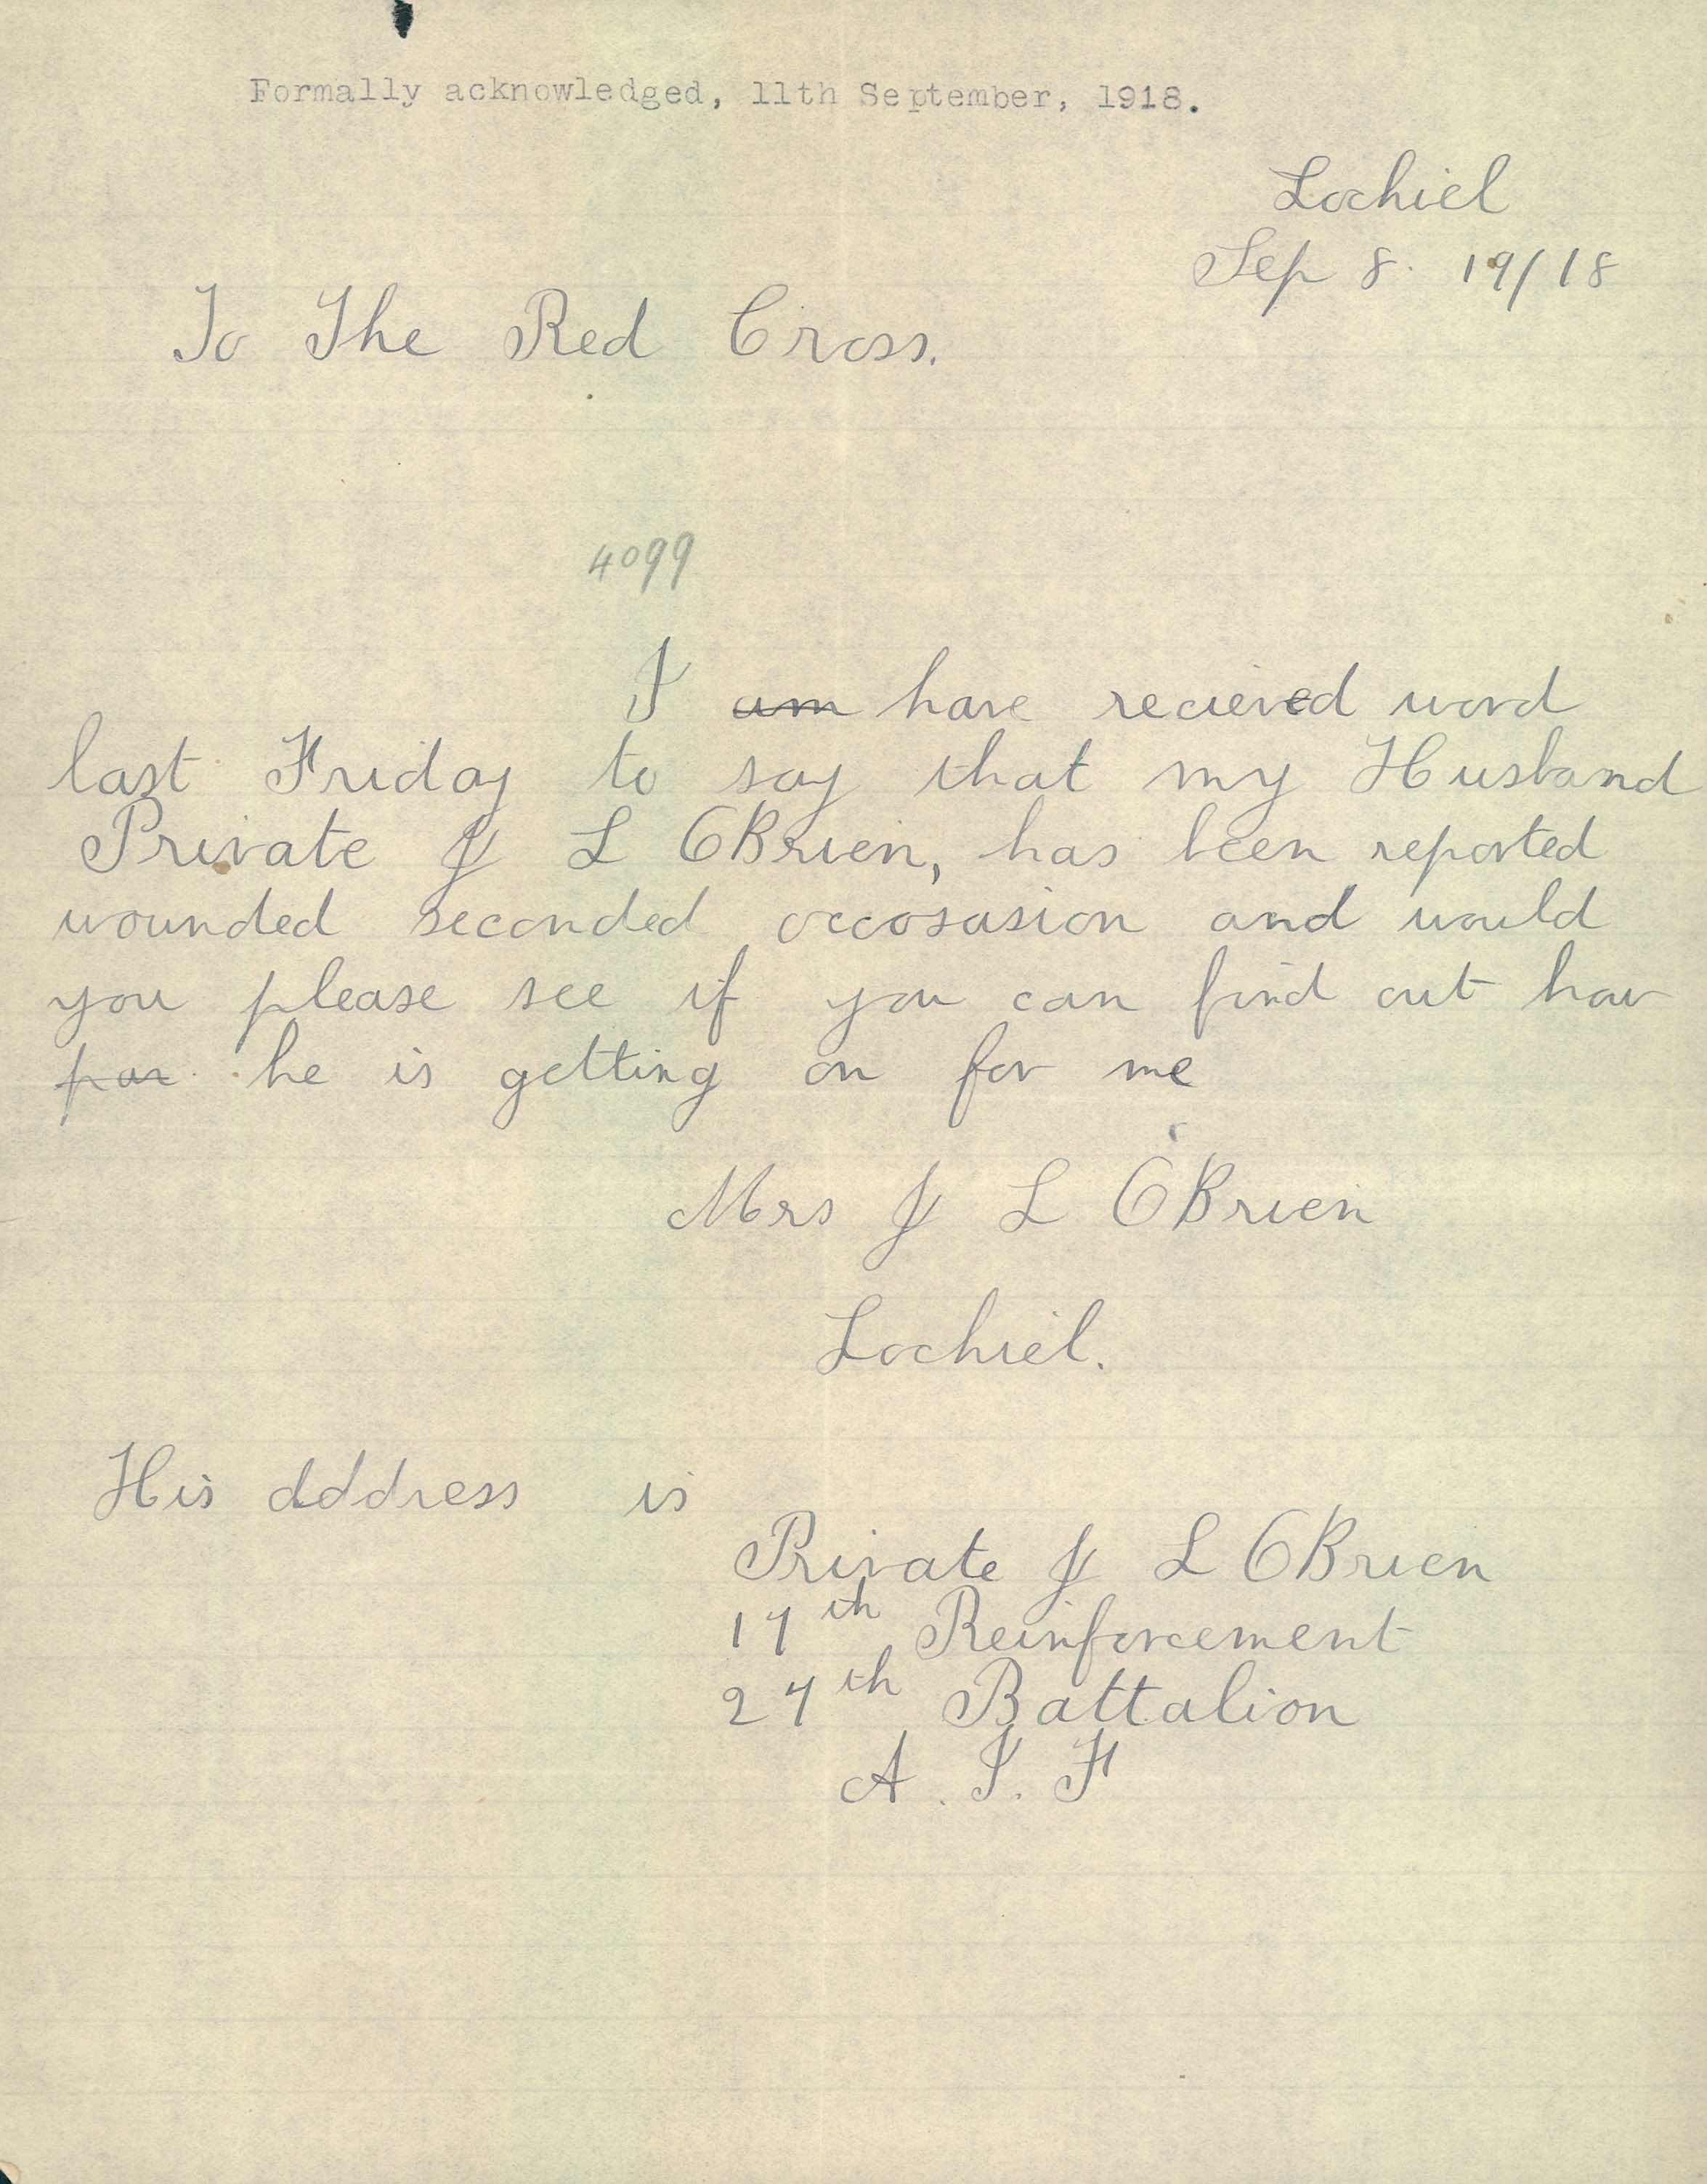 Formally acknowledged, 11th September, 1918.
Lochiel
Sep 8. 19/18
To The Red Cross.
4099
I am have recieved word
last Friday to say that my Husband
Private J L OBrien, has been reported
wounded seconded occosasion and would
you please see if you can find out how
he is getting on for me
Mrs J L OBrien
Lochiel.
His dddress is
Private J L OBrien
17th Reinforcement
27th Battalion
A. I. F